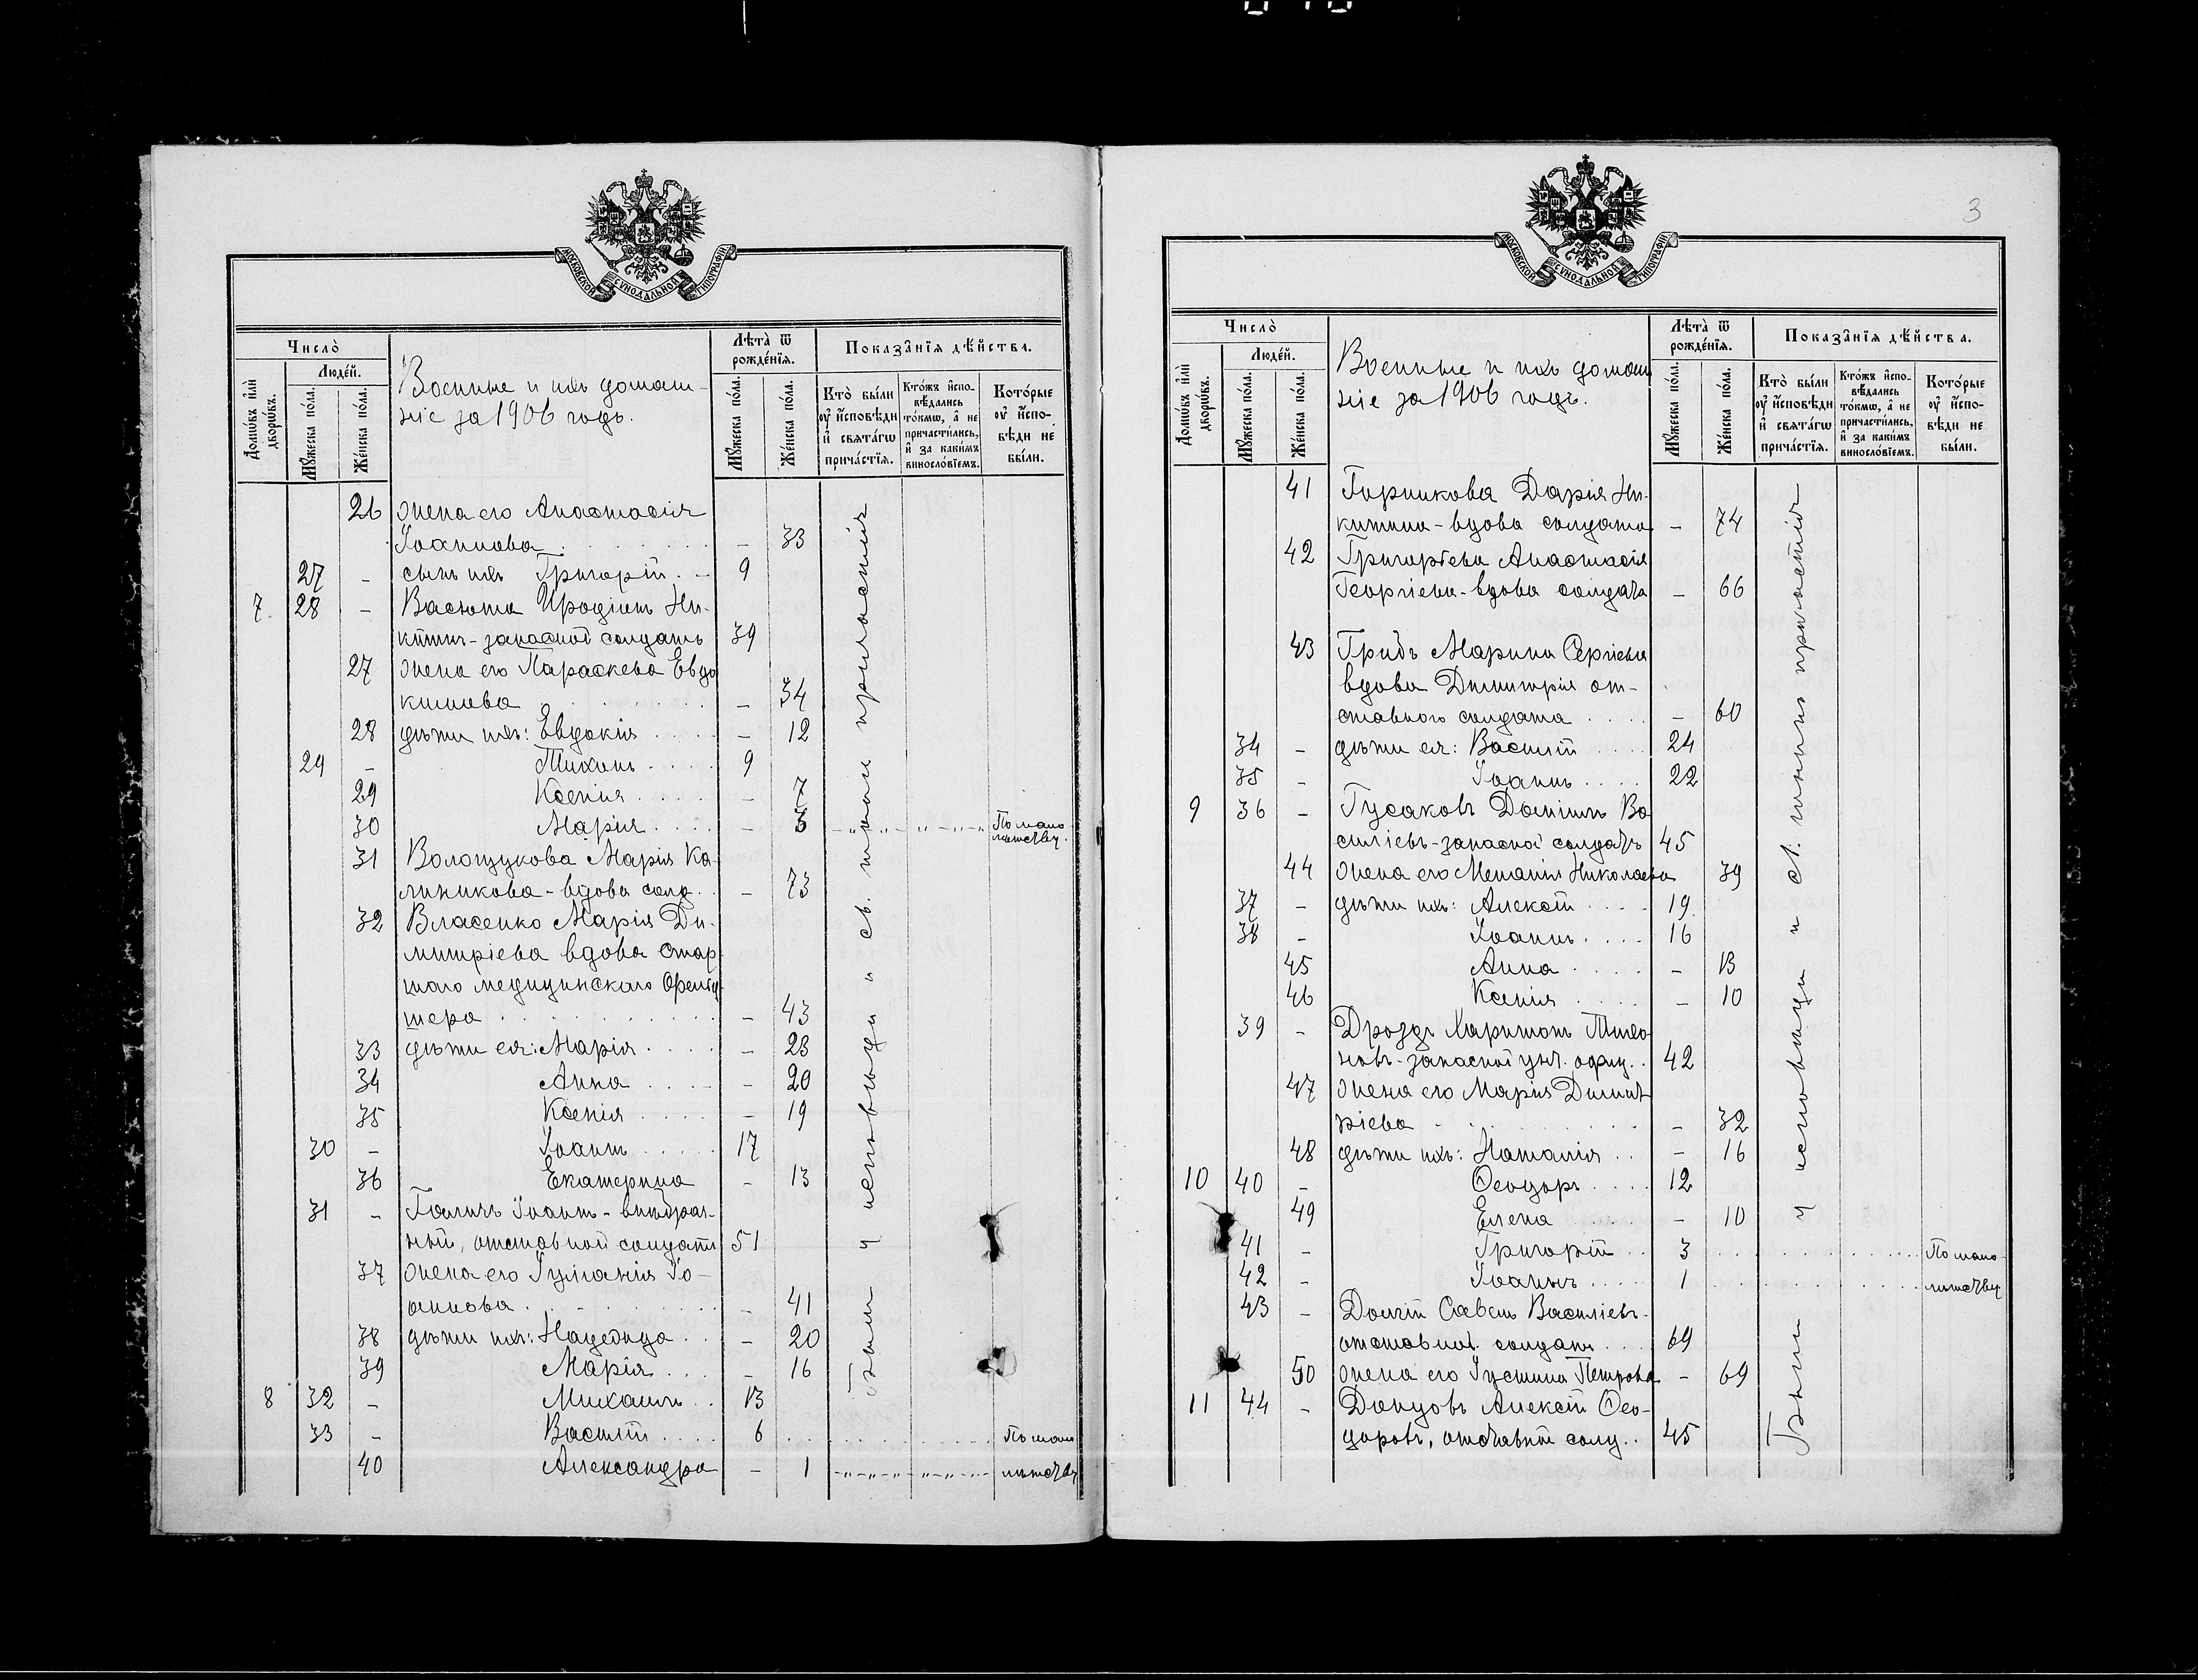 МОСКОВСКОЙ СѴНОДАЛЬНОЙ ТИПОГРАФІИ
Число̀
Домѡ́въ и҆лѝ дворѡ́въ.
Люде́й.
Мꙋ́жеска по́ла.
Же́нска по́ла.
Военные и ихъ домаш-
ніе за 1906 годъ.
Лѣ́та ѿ рожде́нїѧ.
Мꙋ́жеска по́ла.
Же́нска по́ла.
Показа̑нїѧ дѣ́йства.
Кто̀ бы́ли ᲂу҆ и҆́сповѣди и҆ свѧта́гѡ прича́стїѧ.
Кто́жъ и҆спо-вѣ́дались то́кмѡ, а҆ не причасти́лись, и҆ за каки́мъ винословїемъ.
Кото́рые ᲂу҆ и҆́спо-вѣди не бы́ли.
26 жена его Анастасія
Іоаннова . . . . . – 33
27 – сынъ ихъ Григорій . – 9
7. 28 – Васюта Иродіонъ Ни-
китинъ - запасной солдатъ 39
27 жена его Параскева Евдо
кимова . . . . . – 34
28 дѣти ихъ: Евдокія . . . . – 12
29 – Тихонъ . . . . 9
29 Ксенія . . . . – 7
30 Марія . . . . – 3 По мало
лѣтству.
31 Волощукова Марія Ка-
линикова - вдова солд. . – 73
32 Власенко Марія Ди-
митріева вдова стар
шаго медицинскаго Фельд-
шера . . . . . – 43
33 дѣти ея: Марія . . . . – 23
34 Анна . . . . – 20
35 Ксенія . . . . – 19
30 – Іоаннъ . . . . . 17
36 Екатерина – 13
31 – Іоаннъ -
ный, отставной солдатъ 51
37 жена его Іуліанія Іо-
аннова . . . . . – 41
38 дѣти ихъ: Надежда . . – 20
39 Марія . . . – 16
8 32 – Михаилъ . . 13
33 – Василій . . . . 6 По мало
40 Александра – 1 лѣтству
Были у исповѣди и св. таинъ причастія
3
МОСКОВСКОЙ СѴНОДАЛЬНОЙ ТИПОГРАФІИ
Число̀
Домѡ́въ и҆лѝ дворѡ́въ.
Люде́й.
Мꙋ́жеска по́ла.
Же́нска по́ла.
Военные и ихъ домаш
ніе за 1906 годъ.
Лѣ́та ѿ рожде́нїѧ.
Мꙋ́жеска по́ла.
Же́нска по́ла.
Показа̑нїѧ дѣ́йства.
Кто̀ бы́ли ᲂу҆ и҆́сповѣди и҆ свѧта́гѡ прича́стїѧ.
Кто́жъ и҆спо-вѣ́дались то́кмѡ, а҆ не причасти́лись, и҆ за каки́мъ винословїемъ.
Кото́рые ᲂу҆ и҆́спо-вѣди не бы́ли.
41 Горникова Дарія Ни-
китина - вдова солдата – 74
42 Григорьева Анастасія
Георгіева - вдова солдата – 66
43 Гридь Марина Сергіева
вдова Димитрія от-
ставного солдата . . . . – 60
34 – дѣти ея: Василій . . . . 24
35 – Іоаннъ . . . . 22
9 36 – Гусаковъ Даніилъ Ва
силіевъ - запасной солдатъ 45
44 жена его Меланія Николаева 39
37 – дѣти ихъ: Алексѣй . . . . 19.
38 – Іоаннъ . . . . 16
45 Анна . . . . – 13
46 Ксенія . . . . – 10
39 – Дроздъ Харитонъ Тимо
новъ - запасной унт. офиц. . 42
47 жена его Марія Димит
ріева . . . . . – 32
48 дѣти ихъ: Наталія . . – 16
10 40 – Ѳеодоръ . . . . 12
49 Елена . . . . – 10
41 – Григорій . . 3 По мало-
42 – Іоаннъ . . . . 1 лѣтству
43 – Долгій Савва Василіевъ-
отставной солдатъ . . . 69
50 жена его Іустина Петрова – 69
11 44 – Донцовъ Алексѣй Ѳео-
доровъ, отставной солд. . 45
Были у исповѣди и св. таинъ причастія